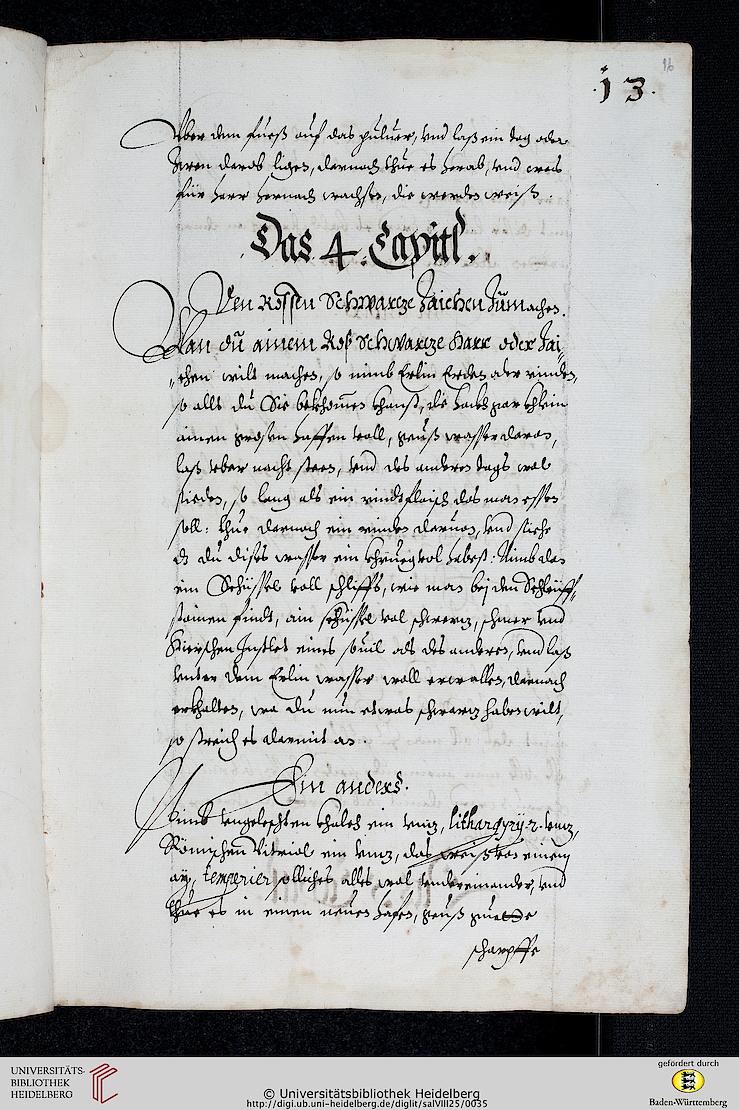 16
.13.
Vber dem fueß auf das puluer, vnd laß ein tag oder
zwen darob ligen, darnach thue es herab, vnd was
für haar hernach wachsen, die werden weiß.
Das 4. Capitl.
Den Rossen Schwarcze Zaichen Zumachen.
Wan du ainem Roß Schwarcze Harr oder Zai=
=chen wilt machen, so nimb Erlin Erden oder rinden,
so alls du Sie bekhomen khanst, die hackh gar khlein
ainen grosen haffen voll, geuß wasser daran,
laß vber nacht steen, vnd des anderen tags wol
sieden, so lang als ein rindtflaisch das man essen
soll: thue darnach ein rinden daruon, vnd siehe
dz du dises wasser ein khrueg vol habest: Nimb dan
ein Schüssel voll schliffs, wie man bej den Schleüff=
stainen findt, ain schüssel vol schwercz, schmer vnd
Hirschen Inslet eines souil als des anderen, vnd laß
vnter dem Erlin wasser woll erwallen, darnach
erkhalten, wa du nun etwas schwarcz haben wilt,
so streich es darmit an.
Ein anders.
Nimb vngeleschten khalch ein vncz, lithargyrij 2. vncz,
Römischen Vitriol ein vncz, das weiß von einem
ay, temperier solliches alles wol vndereinander, vnd
thue es in einen neuen hafen, geuß guete
scharpffe
UNIVERSITÄTS-
BIBLIOTHEK
HEIDELBERG
© Universitätsbibliothek Heidelberg
http://digi.ub.uni-heidelberg.de/diglit/salVIII25/0035
gefördert durch
Baden-Württemberg